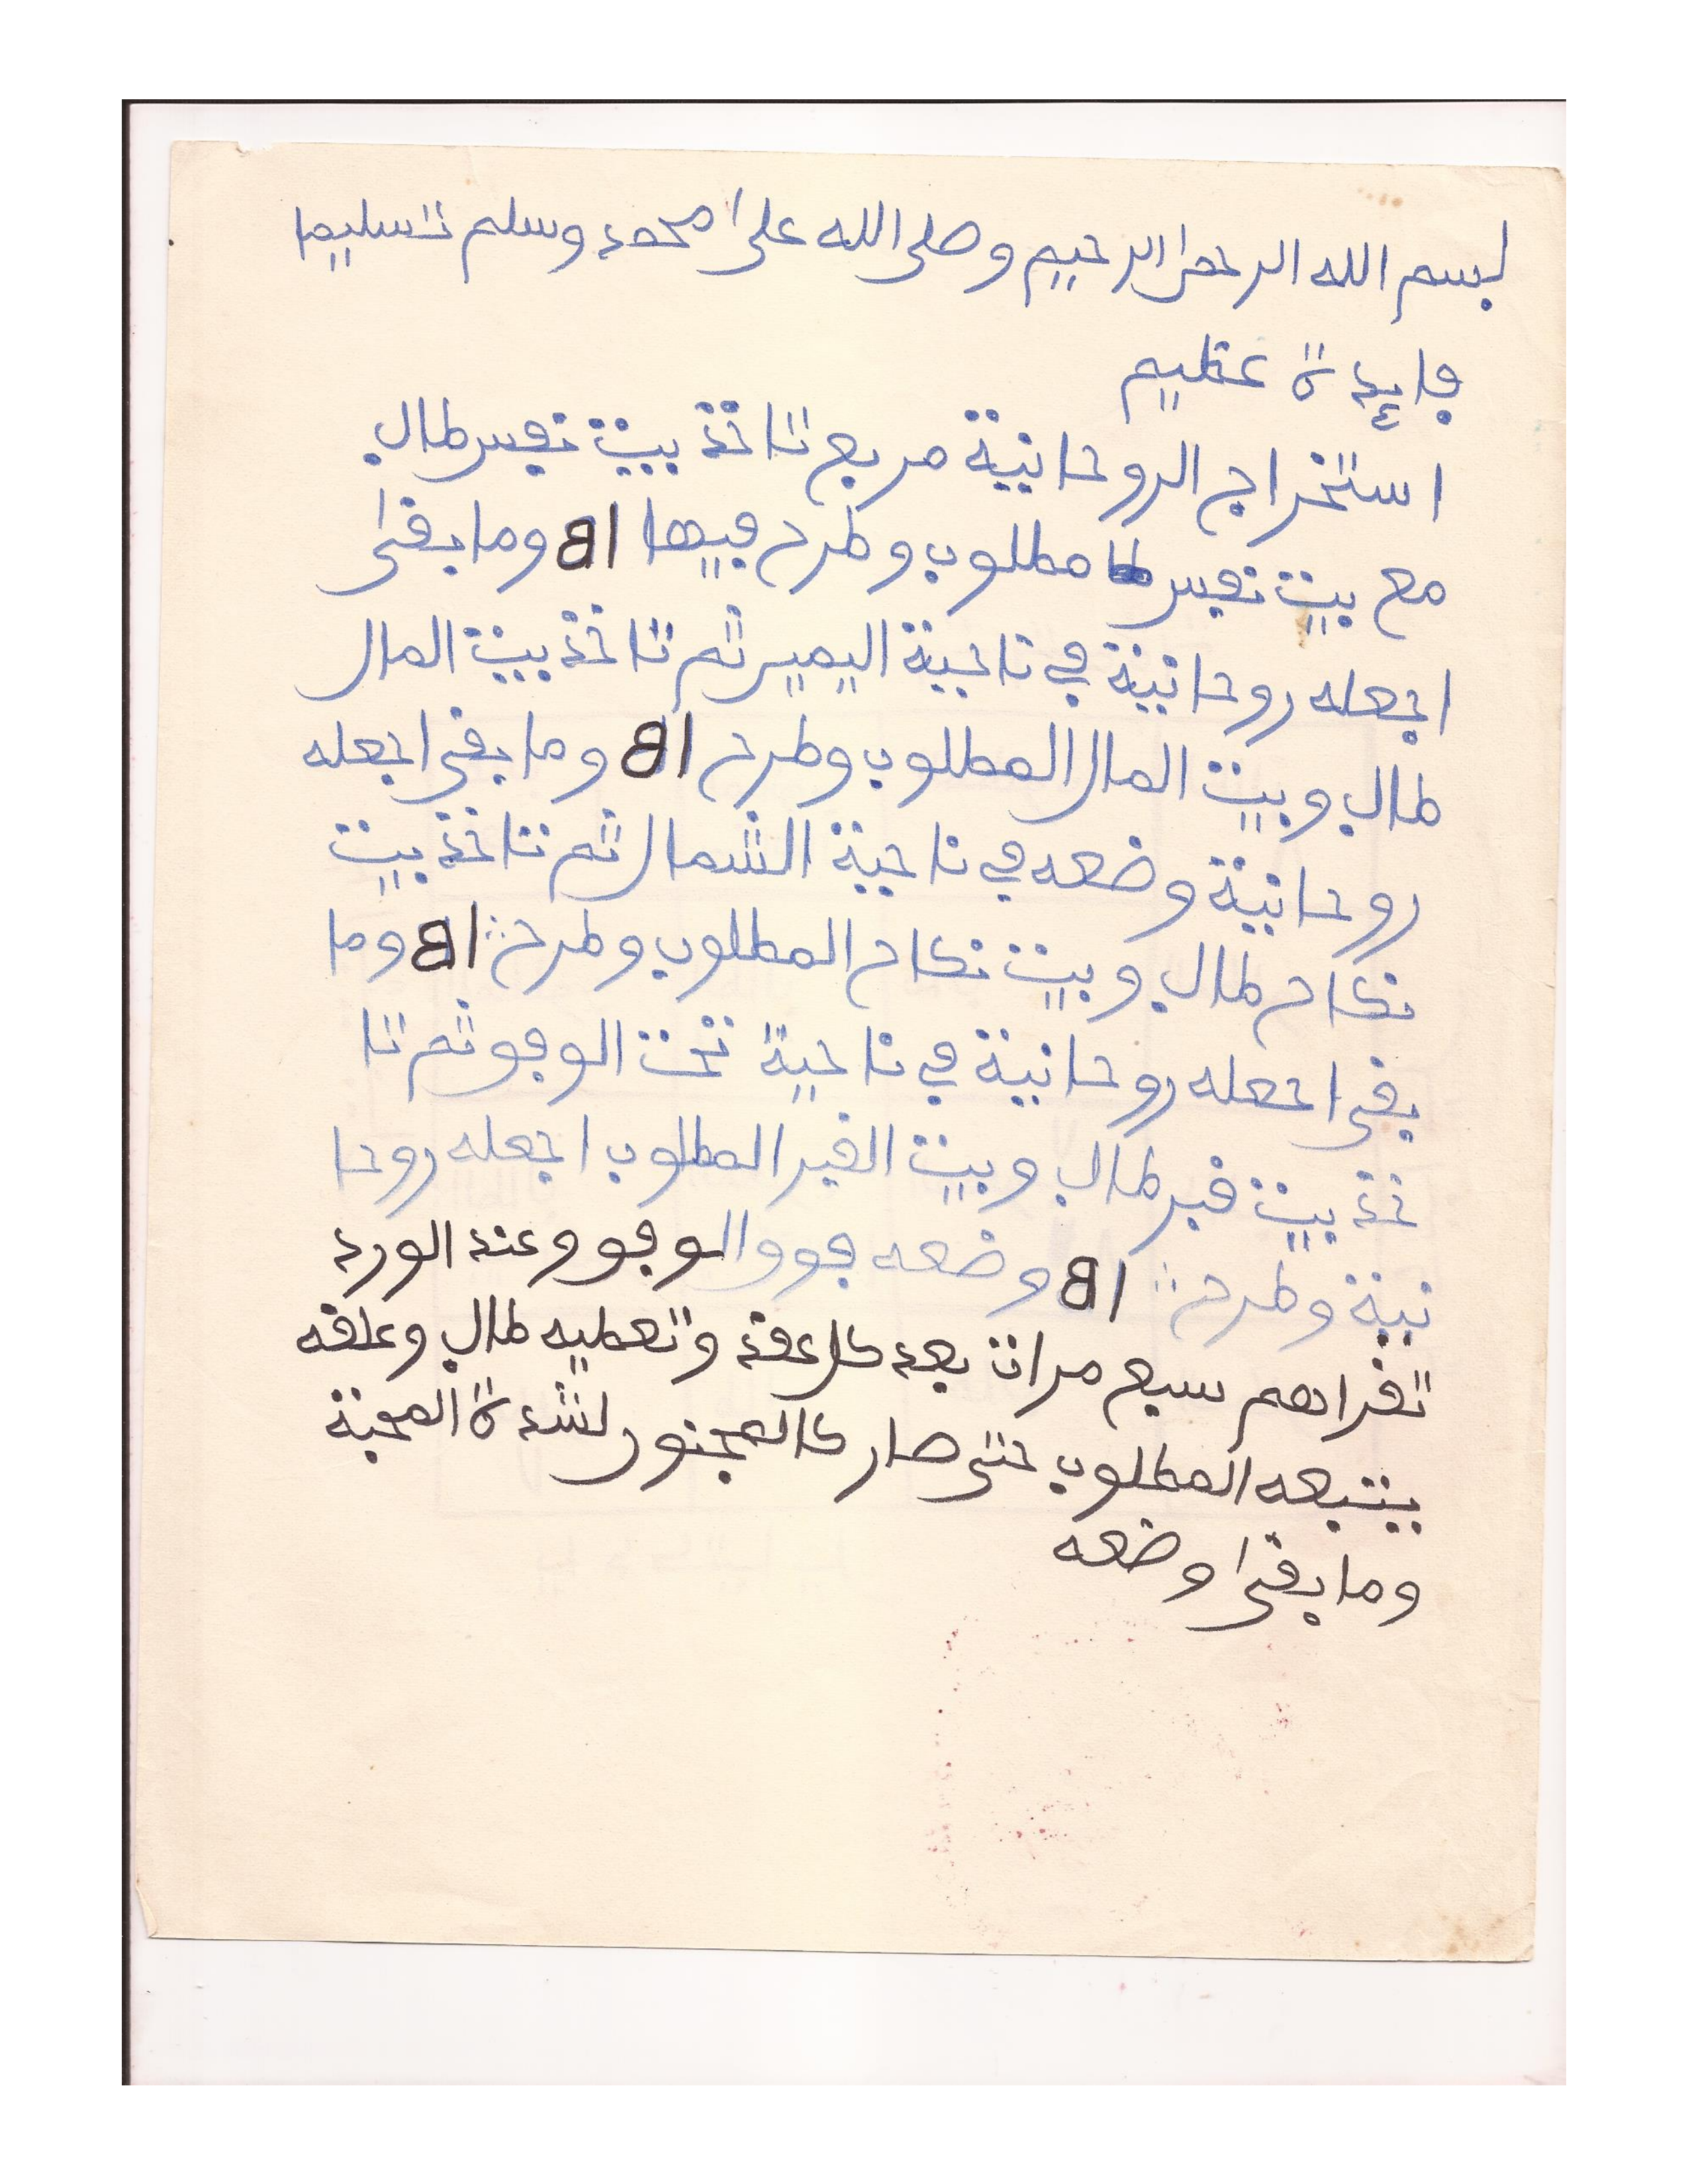 بسم الله الرحمن الرحيم وصلى الله على محمد وسلم تسليما
فايدة عظيم
استخراج الروحانية مربع تاخذ بيت نفس طالب
مع بيت نفس مطلوب وطرح فيها 81 وما بقى
اجعله روحانية في ناحية اليمين ثم تاخذ بيت المال
طالب وبيت المال المطلوب وطرح 81 وما بقى اجعله
روحانية وضعه في ناحية الشمال ثم تاخذ بيت
نكاح طالب وبيت نكاح المطلوب وطرح 81 وما
بقى اجعله روحانية في ناحية تحت الوفق ثم تا
خذ بيت قبر طالب وبيت القبر المطلوب اجعله روحا
نية وطرح 81 وضعه فوق والوفق وعند الورد
تقراهم سبع مرات بعد كل عقد وتعطيه طالب وعلقه
يتبعه المطلوب حتى صار كالمجنون لشدة المحبة
وما بقى وضعه